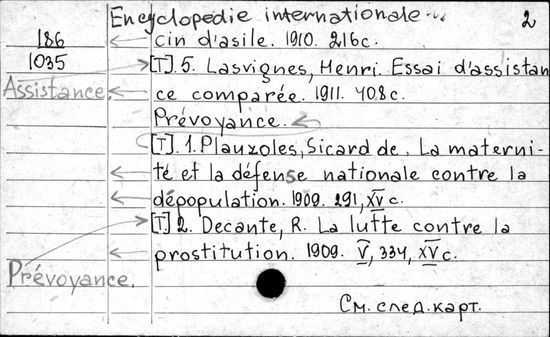 Encyclopédie internationale...
2
186
cin d'asile. 1910. 216c.
1035
[T]. 5. Lasvignes, Henri. Essai d'assistan
Assistance.
ce comparée. 1911. 408c.
Prévoyance.
[T]. 1. Plauzoles, Sicard de. La materni-
té et la défense nationale contre la
dépopulation. 1909. 291, XV c.
[T.] 2. Decante, R. La lutte contre la
prostitution. 1909. V, 334, XV c.
Prévoyance.
См. след. карт.